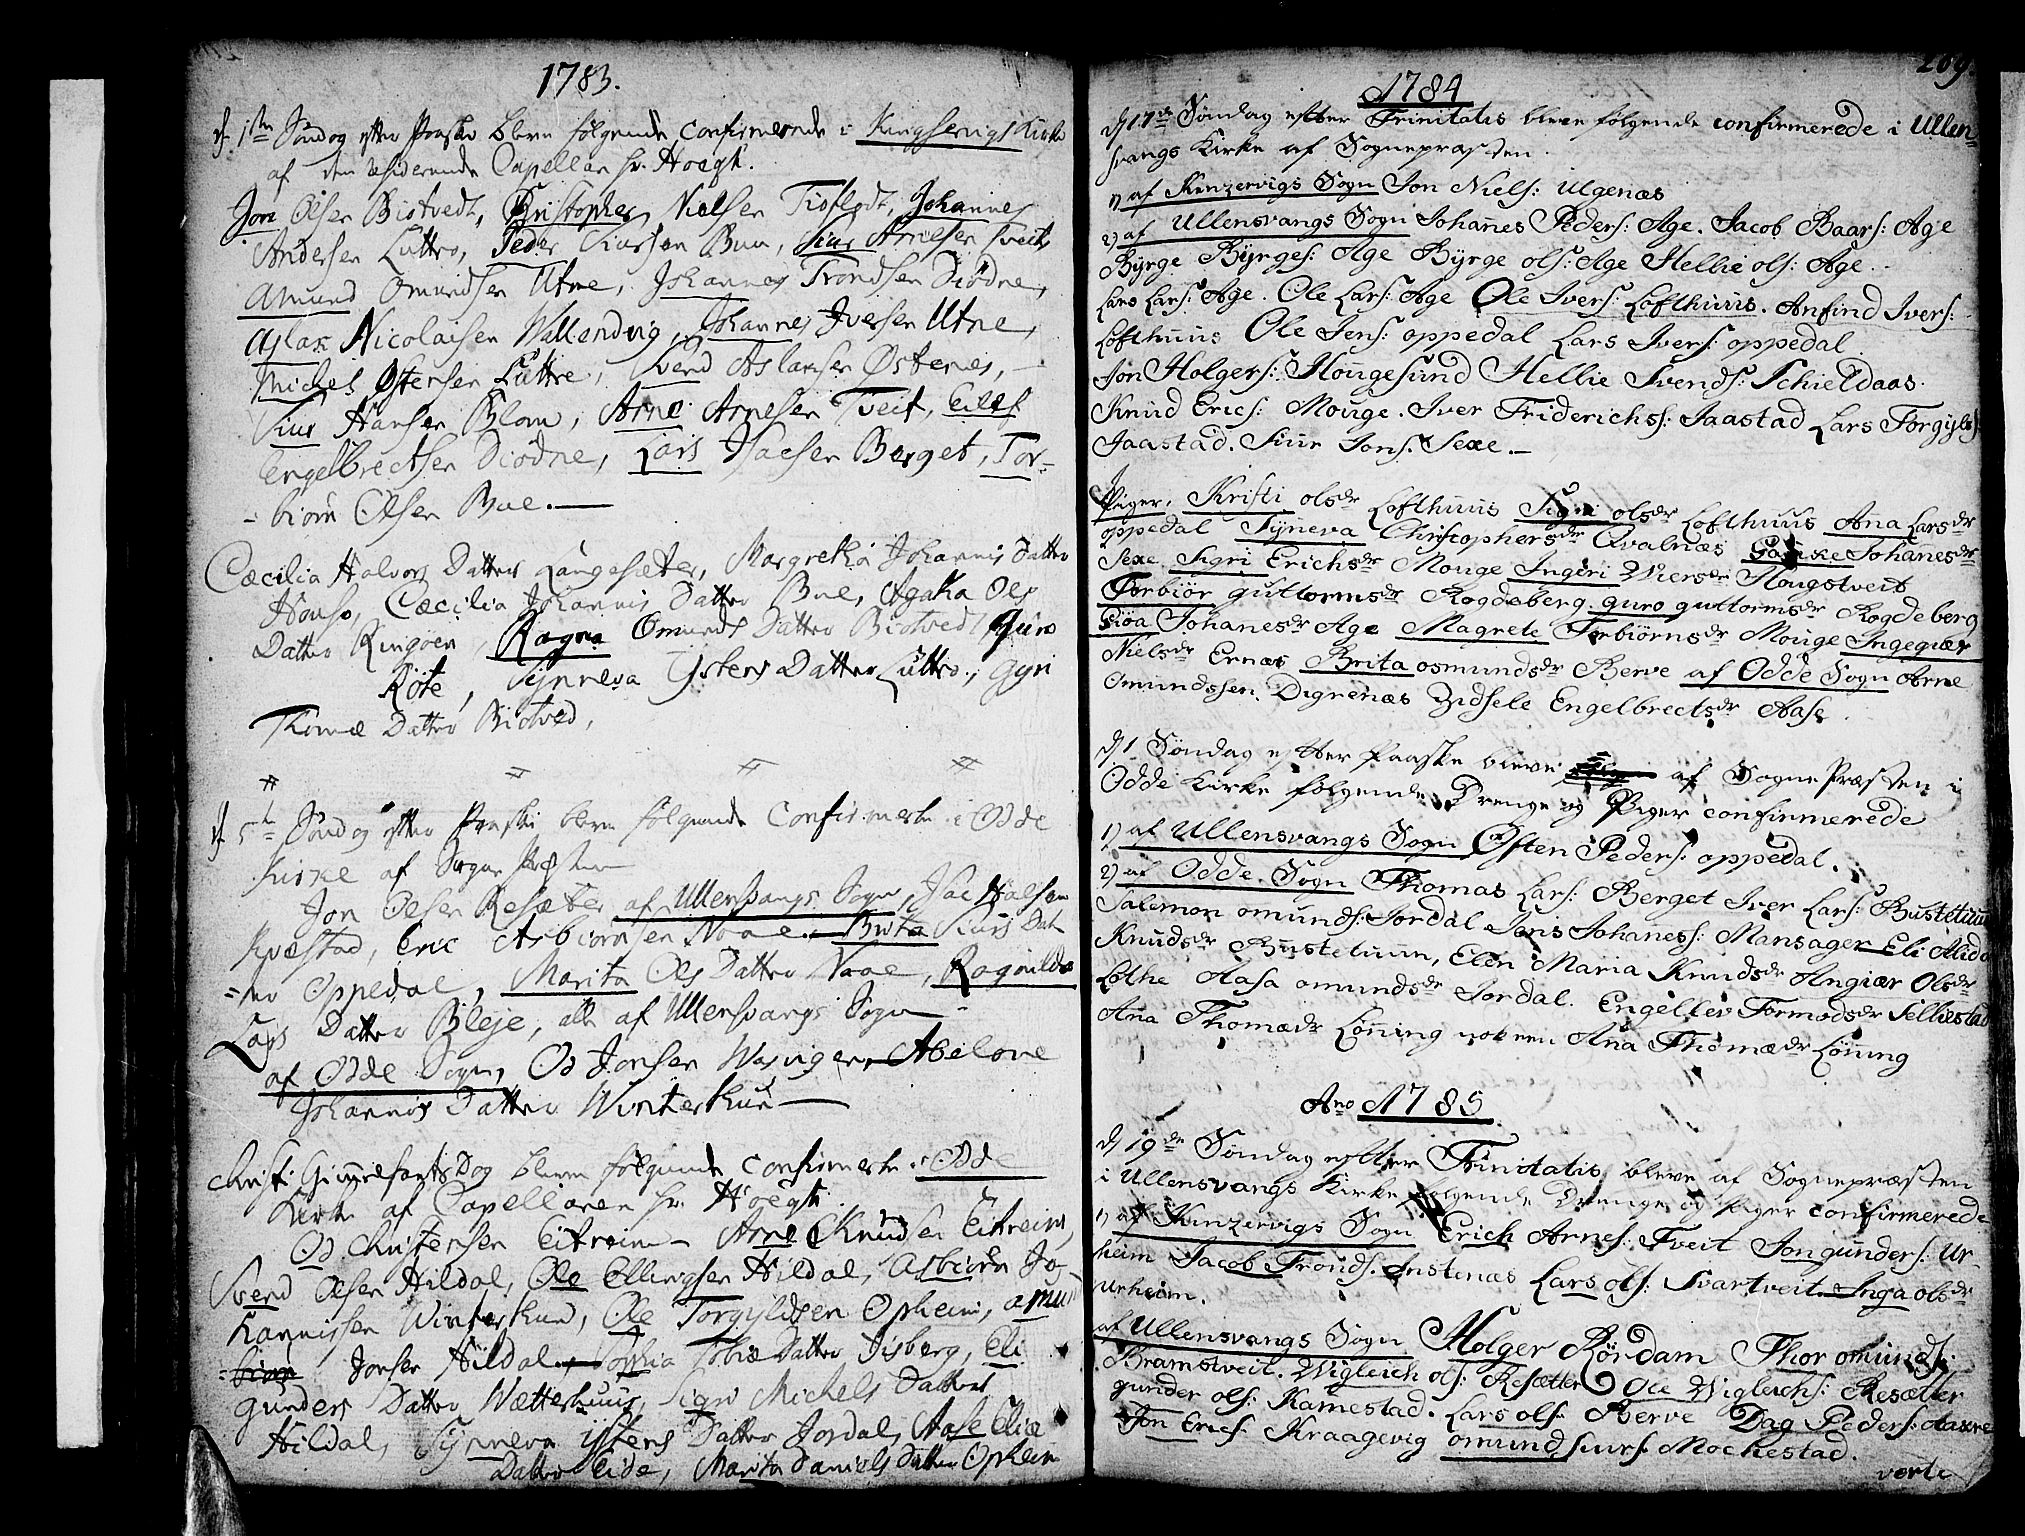 1783.
d. 1ste Søndag efter Paaske bleve følgende confirmerede i Kingservigs Kirke
af den residerende Capellan hr. Hoegh.
Jon Olsen Bistvedt, Christopher Nielsen Tioflodt, Johannes
Andersen Luttro, Peder Siursen Buu, Siur Arnesen Tveit,
Amund Omundsen Utne, Johannes Trondsen Diödne,
Aslak Nicolaisen Wallendvig, Johannes Iversen Utne,
Michel Østensen Luttre, Svend Aslaksen Østenes,
Siur Hansen Blom, Arne Arnesen Tveit, Eilef
Engelbrectsen Diødne, Lars Isacsen Berget, Tor-
- biørn Olsen Bue.
Cæcilia Halvors Datter Langesæter, Margretha Johannis Datter
Houso, Cæcilia Johannis Datter Bue, Agatha Ols
Datter Ringøen, Ragna Omunds Datter Bistved, Guro
Röte, Synneva Ystens Datter Luttro, Gyri
Thomæ Datter Bistved,
d. 5te Søndag efter Paaske bleve følgende Confirmerte i Odde
Kirke af Sogne Præsten
Jon Olsen Resæter af Ullensvangs Sogn, Isac
Kvæstad, Eric Asbiørnsen Naae. Brita Siurs Dat
=ter Oppedal, Marita Ols Datter Naae, Ragnilda
Lars Datter Bleje, alle af Ullensvangs Sogn
af Odde Sogn, Od Jonsen Wasvigen, Abelone
Johannis Datter Winterthun
Christi Himmelfarts Dag bleve følgende confirmerte i Odde
Kirke af Capellanen hr. Hoegh.
Od Christensen Eitreim Arne Knudsen Eitreim,
Svend Olsen Hildal, Ole Ellingsen Hildal, Asbiørn Jo-
hannissen Winterthun, Ole Torgyldsen Opheim, Amun
Jonsen Hildal, Sophia Tobiæ Datter Isberg, Eli
Gunders Datter Wætterhuus, Sigri Michels Datter
Hildal, Synneva Ystens Datter Jordal, Aase Eliæ
Datter Eide, Marita Daniels Datter Opheim
209.
1784
d 17de Søndag efter Trinitatis bleve følgende confirmerede i Ullen=
svangs Kirke af Sognepræsten.
1) af Kinzervigs Sogn Jon Niels: Ulgenæs
2) af Ullensvangs Sogn Johanes Peders: Age. Jacob Baars: Age
Byrge Byrges: Age Byrge ols: Age Hellie ols: Age.
Lars Lars: Age. Ole Lars: Age Ole Ivers: Lofthuus. Anfind Ivers:
Lofthuus Ole Jens: oppedal Lars Ivers: oppedal
Jon Holgers: Hougesund Hellie Svends: Schieldaas.
Knud Erics: Mouge. Iver Friderichs: Jaastad Lars Torgyls:
Jaastad. Siur Jons: Sexe.
Piger, Kristi olsdr Lofthuus Sigri olsdr Lofthuus Ana Larsdr
oppedal Syneva Christophersdr Qvalnæs Johanesdr
Sexe. Sigri Erichsdr Mouge Ingeri Wiersdr Hougstveit
Torbiør guttormsdr Rogdeberg. guro guttormsdr Rogdeberg
Giöa Johanesdr Age Magrete Torbiørnsdr Mouge Ingegiær
Nielsdr Ernæs Brita osmundsdr Berve af Odde Sogn Arne
Omundssen. Digrenæs Zidsele Engelbrectsdr Aase
d 1 Søndag efter Paaske bleve af Sogne Præsten i
Odde Kirke følgende Drenge og Piger confirmerede
1) af Ullensvangs Sogn Østen Peders: oppedal.
2) af Odde Sogn Thomas Lars: Berget Iver Lars: Bustetuun
Salemon omunds: Jordal Joris Johaness: Mansager Eli Alida
Knudsdr Bustetuun, Elen Maria Knudsdr Angiær Olsdr
Lothe Aasa omundsdr Jordal. Engellev Tormodsdr Selliestad
Ana Thomædr Löning noch en Ana Thomædr Löning
Ano 1785.
d 19de Søndag efter Trinitatis bleve af Sognepræsten
i Ullensvangs Kirke følgende Drenge og Piger confirmerede
1) af Kinzervigs Sogn Erich Arnes: Tveit Jon gunders: Ur-
heim Jacob Tronds: Instenæs Lars ols: Svartveit. Inga olsdr
Urheim.
af Ullensvangs Sogn Holger Rördam Thor omunds:
Bramstveit. Wigleich ols: Resætter Ole Wigleichs: Resætter
gunder ols: Kamestad. Lars ols: Berve Dag Peders: Aaxre
Jon Erics: Kraagevig omund siurs: Mochestad.
verte